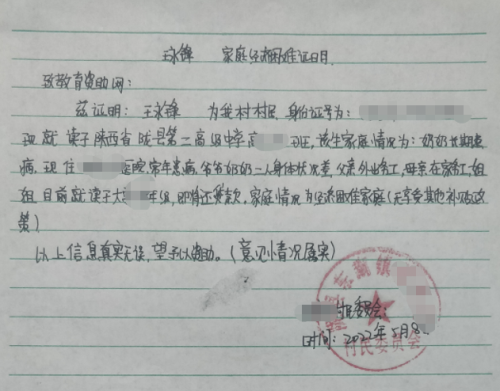 王永锋 家庭经济困难证明
致教育资助网：
兹证明：王永锋 为我村村民 身份证号为：
现就读于陕西省 县第二高级中学高 班，该生家庭情况为：奶奶长期患
病，现住 医院常年患病，爷爷奶奶二人身体状况差，父亲外出务工，母亲在家务工，姐
姐目前就读于大 年级，即将还贷款，家庭情况为经济困难家庭（无享受其他补贴政
策）
以上信息真实无误，望予以资助。（意见：情况属实）
村民委会
时间：2022年5月8
镇
村民委员会